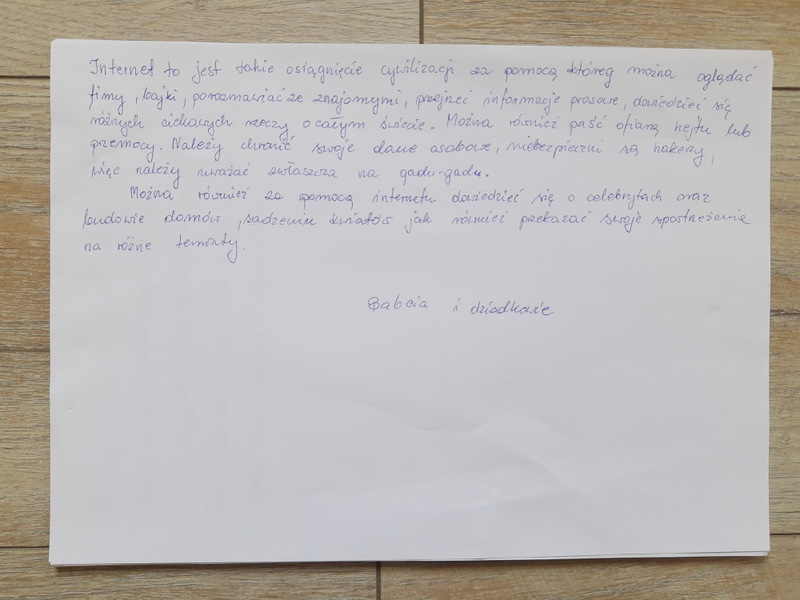 Internet to jest takie osiągnięcie cywilizacji za pomocą któreg można oglądać
fimy, bajki, porozmawiać ze znajomymi, przejrzeć informacje prasowe, dowiedzieć się
różnych ciekawych rzeczy o całym świecie. Można również paść ofiarą hejtu lub
przemocy. Należy chronić swoje dane osobowe, niebezpieczni są hakerzy,
więc należy uważać zwłaszcza na gadu-gadu.
Można również za pomocą internetu dowiedzieć się o celebrytach oraz
budowie domów, sadzeniu kwiatów jak również przekazać swoje spostrzeżenia
na różne tematy.
Babcia i dziadkowie